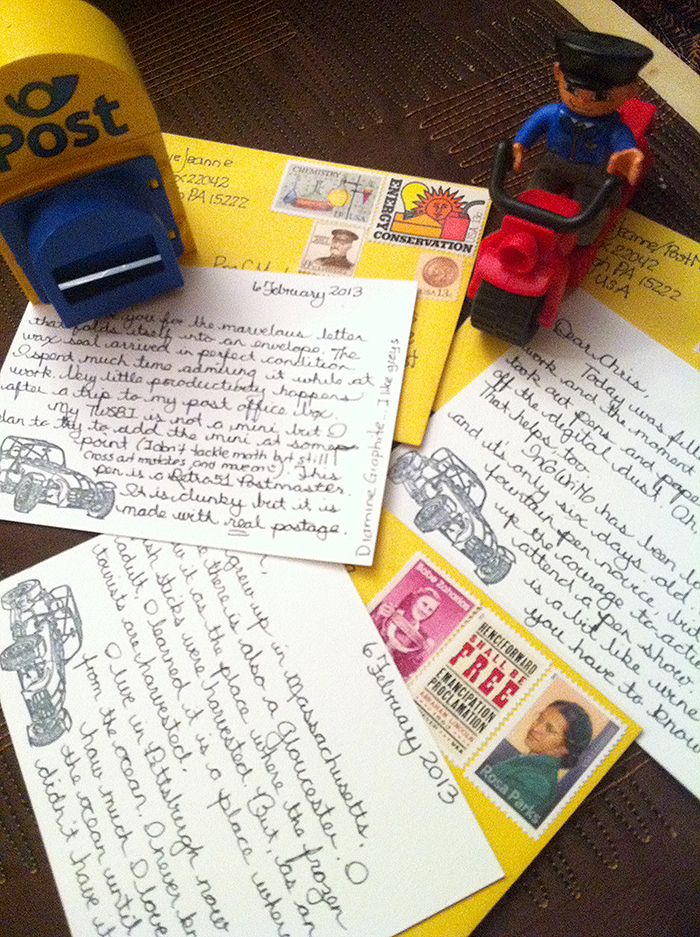 Post
Jeanne
22042
PA 15222
CHEMISTRY
USA
ENERGY
CONSERVATION
USA 13c
USA 13c
Jeanne/Post
22042
PA 15222
USA
6 February 2013
you for the marvelous letter
that folds itself into an envelope. The
wax seal arrived in perfect condition
I spent much time admiring it while at
work. Very little poroductivity happens
after a trip to my post office box.
My TWSBI is not a mini but I
plan to try to add the mini at some
point (I don't tackle math but still!
cross art matches and more on). This
pen is a Retro51 Postmaster.
It is clunky but it is
made with real postage.
Diamine Graphite - I like greys
Dear Chris,
Today was full
work and the moment
took out pens and pap
off the digital dust. Oh
That helps, too.
InCoWriMo has been
and it's only six days old
fountain pen novice, but
up the courage to act
attend a pen show
is a bit like wine
you have to know
6 February 2013
grew up in Massachusetts.
there is also a Gloucester. I
it as the place where the frozen
fish sticks were harvested. But, as an
adult, I learned it is a place where
tourists are harvested.
I live in Pittsburgh now
from the ocean. I never
how much I love
the ocean until
didn't have it
Babe Zaharias
HENCEFORWARD
SHALL BE
FREE
EMANCIPATION
PROCLAMATION
ABRAHAM LINCOLN
Rosa Parks